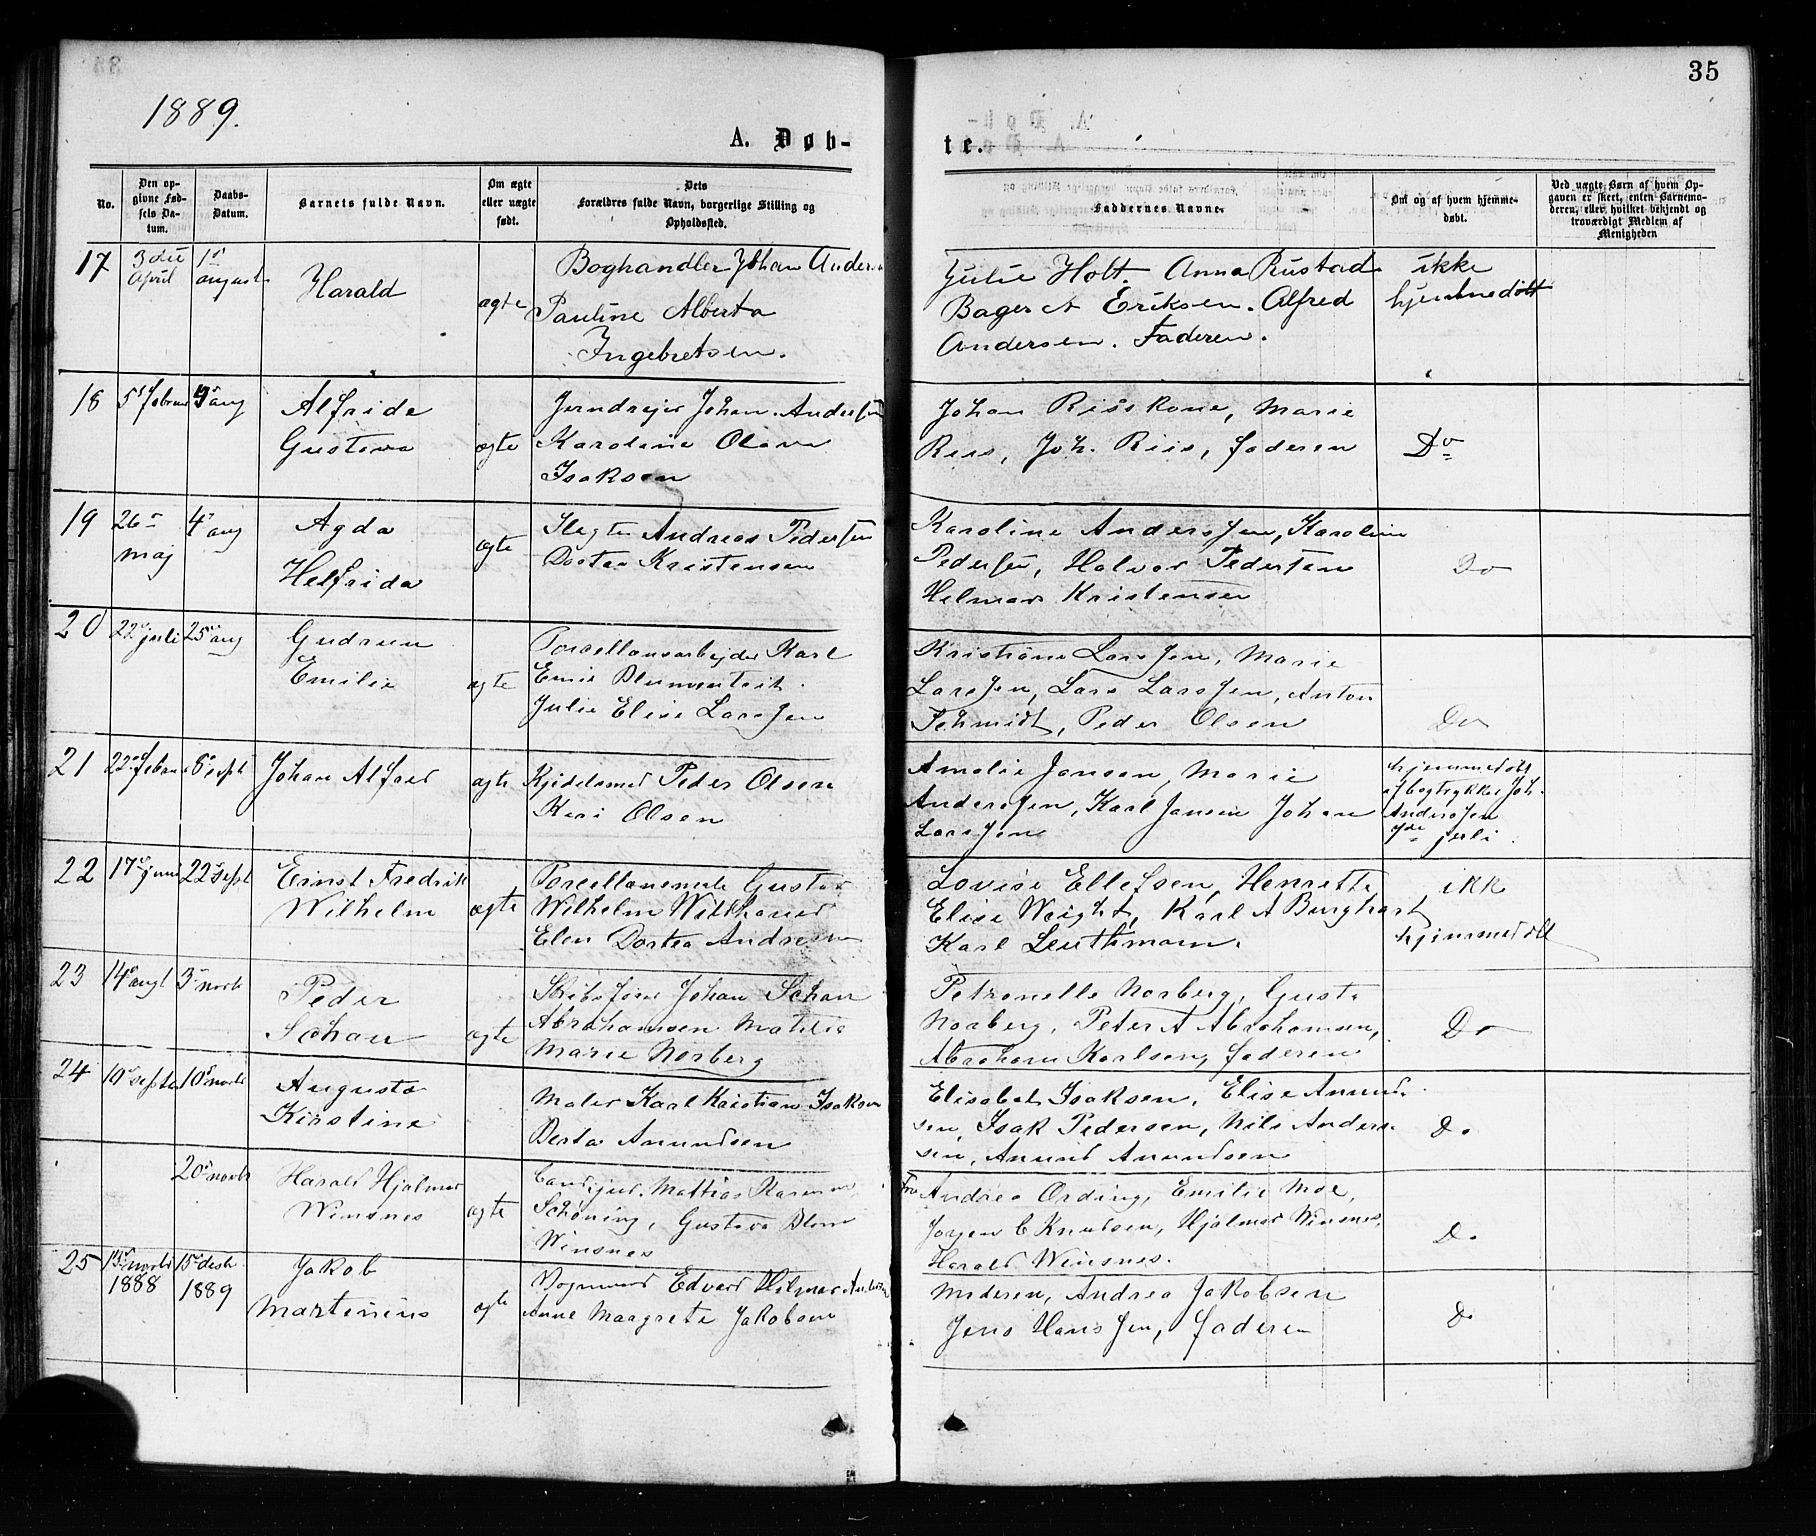 35
1889.
A. Døb-
te.
No.
Den op-
givne Fød-
sels Da-
tum.
Daabs-
Datum.
Barnets fulde Navn.
Om ægte
eller uægte
født.
Dets
Forældres fulde Navn, borgerlige Stilling og
Opholdssted.
Faddernes Navne.
Om og af hvem hjemme-
døbt.
Ved uægte Børn af hvem Op-
gaven er skeet, enten Barnemo-
deren, eller hvilket bekjendt og
troværdigt Medlem af
Menigheden
17
3die
April
1st
august
Harald
ægte
Boghandler Johan Anders
Pauline Alberta
Ingebretsen.
Julie Holt. Anna Rustad
Bager A Eriksen. Alfred
Andersen. Faderen.
ikke
hjemmedøbt
18
5t februar
aug
Alfrida
Gustava
ægte
Jerndrejer Johan Andersen
Karoline Olava
Isaksen
Johan Riis kone, Marie
Riis, Joh. Riis, faderen
Do
19
26
maj
4 aug
Agda
Helfrida
ægte
Slagter Andreas Pedersen
Dortea Kristensen
Karoline Anderssen, Karoline
Pedersen, Halvor Pedersen
Helmar Kristensen
Do
20
22 juli
25 aug
Gudrun
Emilie
ægte
Porcellansarbejder Karl
Emil
Julie Elise Larssen
Kristiane Larssen, Marie
Larssen, Lars Larssen, Anton
Schmidt, Peder Olsen
Do
21
22 februar
8 sept
Johan Alfred
ægte
Kjedelsmed Peder Olsen
Kari Olsen
Amalie Jansen, Marie
Anderssen, Karl Jansen Johan
Larssen
hjemmedøbt
af bogtrykker Joh.
Anderssen
juli
22
17 juni
22 sept
Ernst Fredrik
Wilhelm
ægte
Porcellansmaler Gustav
Wilhelm
Elen Dortea Andresen
Lovise Ellefsen, Henrette
Elise Weight, Karl A Burghart
Karl Leuthmann.
ikke
hjemmedøbt
23
14 augt
3 novb
Peder
Schau
ægte
Skibsfører Johan Schau
Abrahamsen Matilde
Marie Norberg
Petronelle Norberg, Gusta
Norberg, Peter A Abrahamsen,
Abraham Karlsen, faderen
Do
24
19 septb
10 novb
Augusta
Kirstine
Maler Karl Kristian Isaksen
Berta Amundsen
Elisabet Isaksen, Elise Amund-
sen, Isak Pedersen, Nils Ander-
sen, Amund Amundsen
Do
20 novb
Harald Hjalmar
Winsnes
ægte
Cand. jur. Mattias
Schøning, Gustava Blom
Winsnes
Fru Andrea Ording, Emilie Moe,
Jørgen C Knudsen, Hjalmar Winsnes,
Harald Winsnes.
Do
25
novb
1888
15 desb
1889
Jakob
Martinius
ægte
Vognmand Edvard Hilmar Andersen
Anne Margrete Jakobsen
Moderen, Andrea Jakobsen
Jens Hanssen, faderen
Do